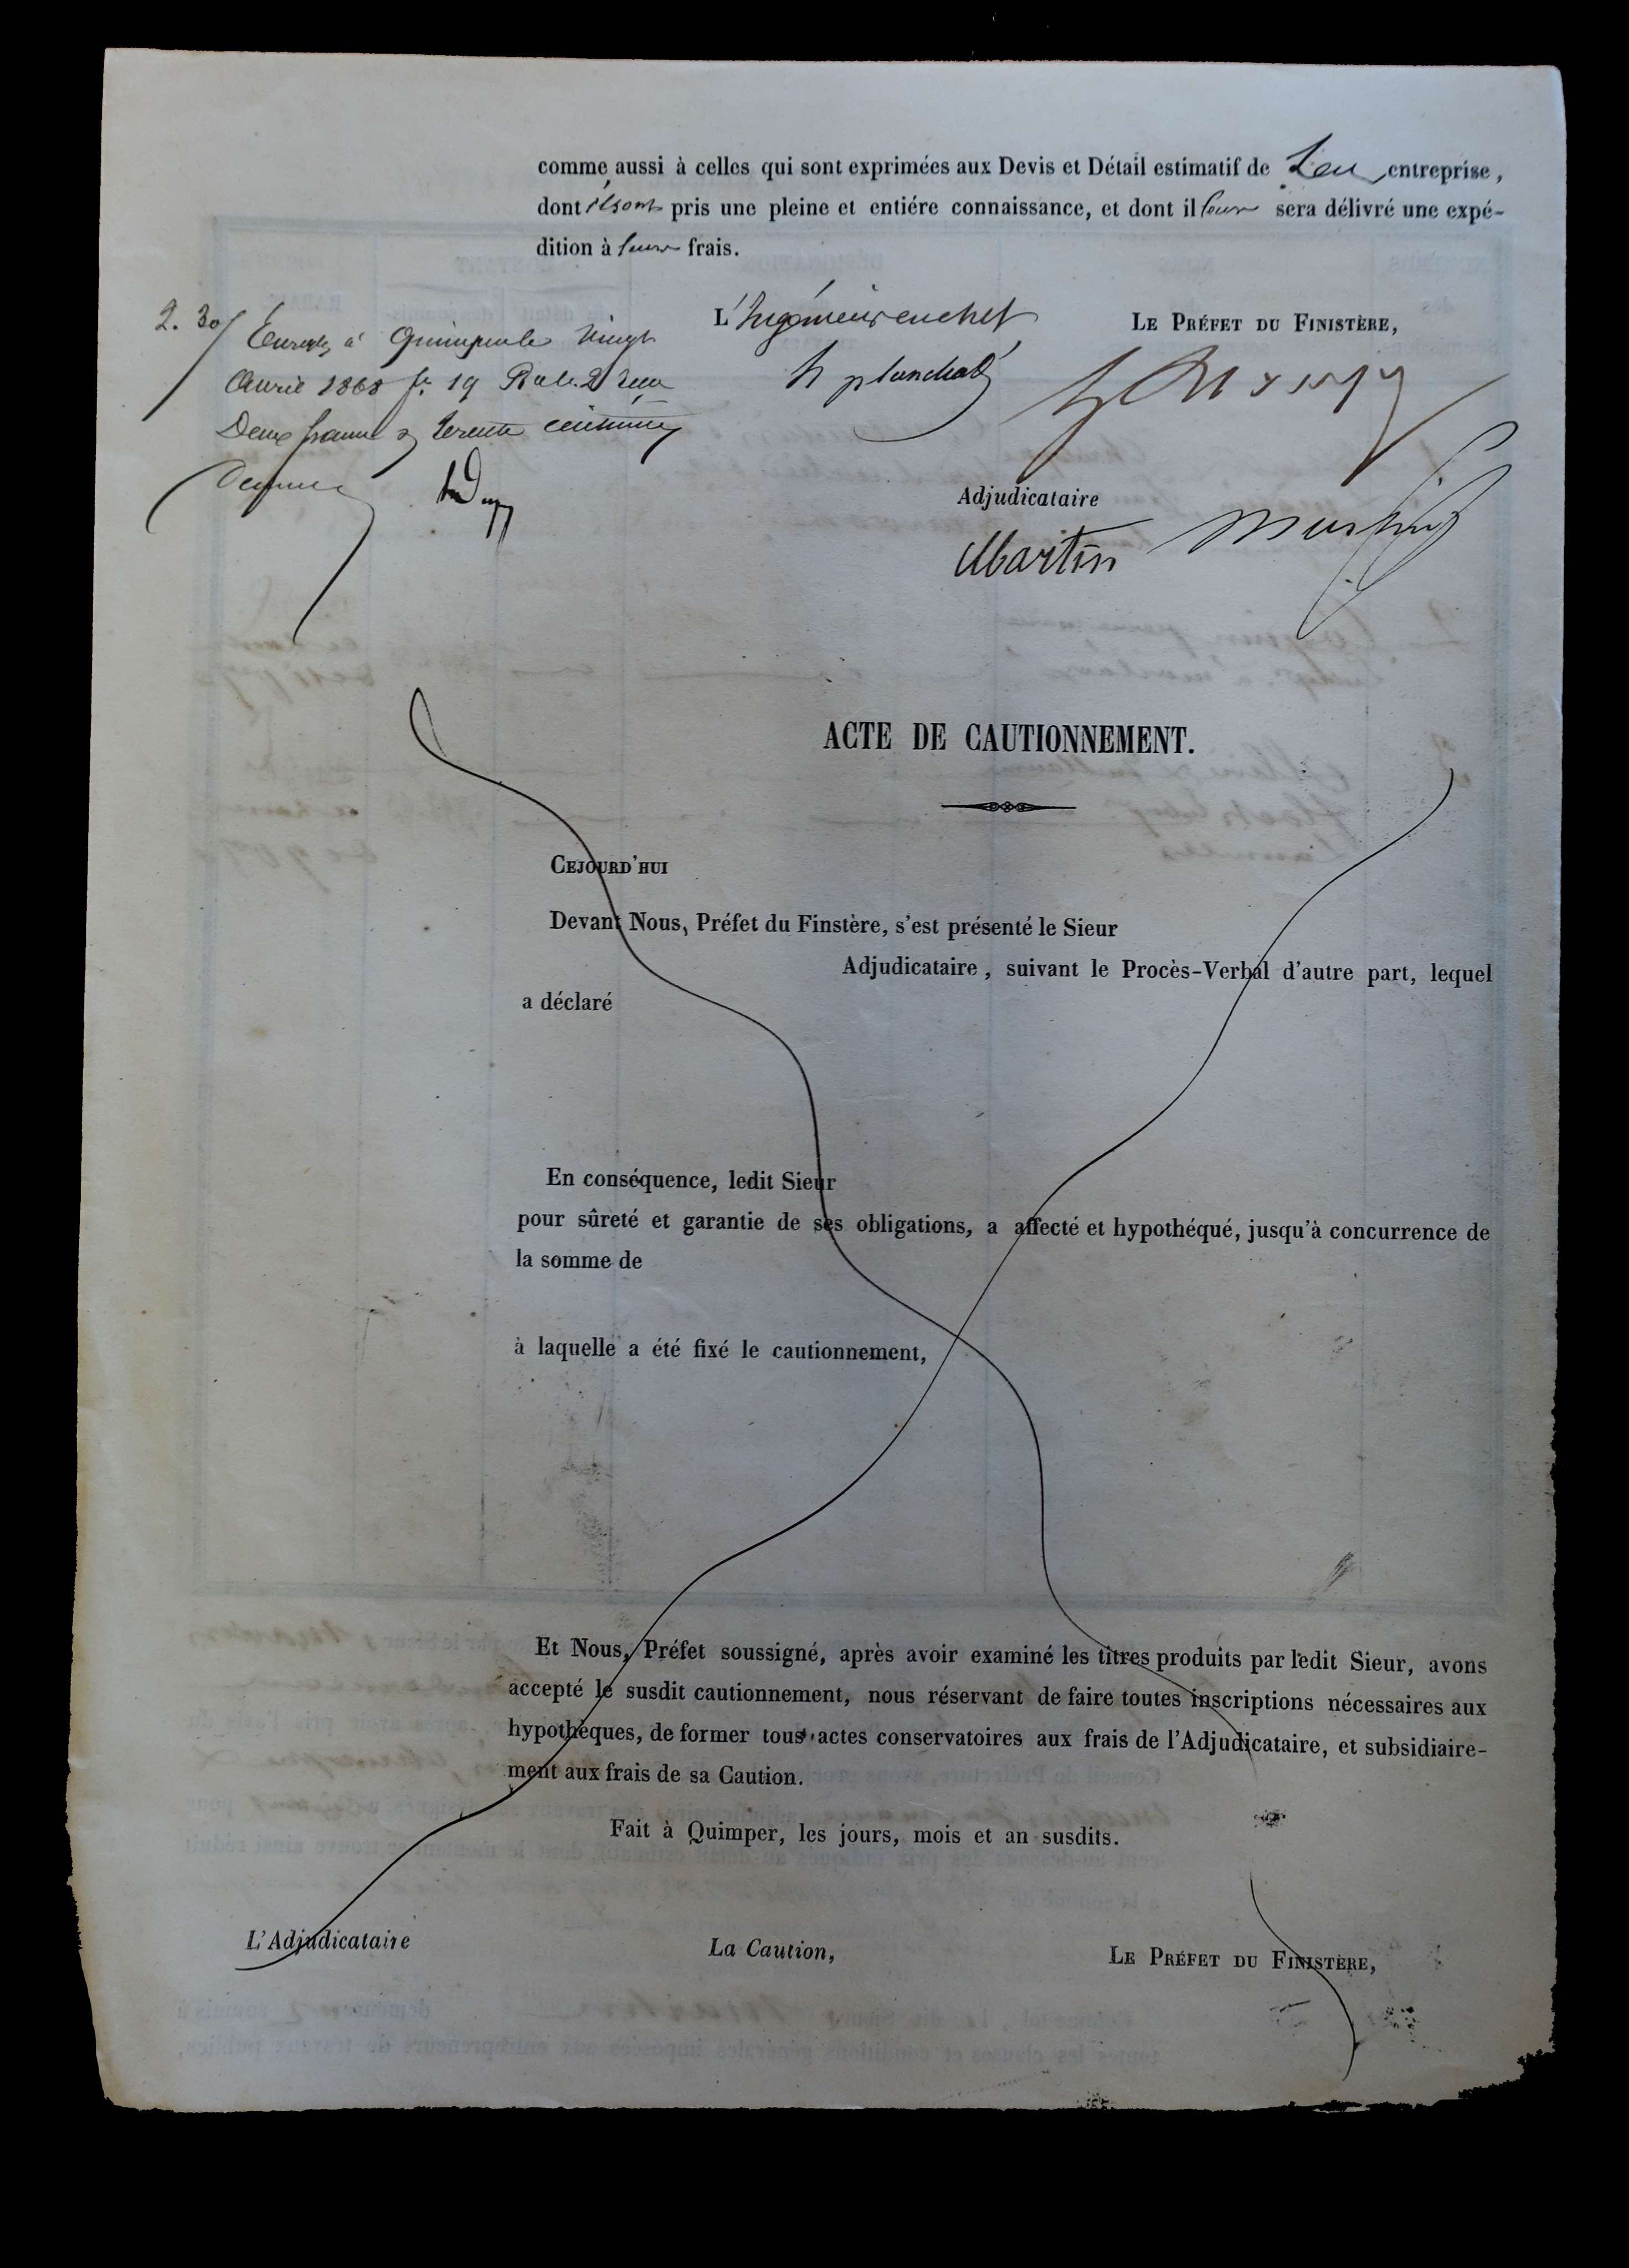 comme aussi à celles qui sont exprimées aux Devis et Détail estimatif de Leur entreprise,
dont ils ont pris une pleine et entiére connaissance, et dont il leur sera délivré une expé-
dition à leurs frais.
2. 30
Enregté à Quimperlé vingt
Avril 1868 fo. 19 Ro c. 2 reçu
Deux francs trente centimes
L'Ingénieur en chef
LE PRÉFET DU FINISTÈRE,
Adjudicataire
Martin
ACTE DE CAUTIONNEMENT.
CEJOURD'HUI
Devant Nous, Préfet du Finstère, s'est présenté le Sieur
Adjudicataire, suivant le Procès-Verbal d'autre part, lequel
a déclaré
En conséquence, ledit Sieur
pour sûreté et garantie de ses obligations, a affecté et hypothéqué, jusqu'à concurrence de
la somme de
à laquelle a été fixé le cautionnement,
Et Nous, Préfet soussigné, après avoir examiné les titres produits par ledit Sieur, avons
accepté le susdit cautionnement, nous réservant de faire toutes inscriptions nécessaires aux
hypothèques, de former tous actes conservatoires aux frais de l'Adjudicataire, et subsidiaire-
ment aux frais de sa Caution.
Fait à Quimper, les jours, mois et an susdits.
L'Adjudicataire
La Caution,
LE PRÉFET DU FINISTÈRE,